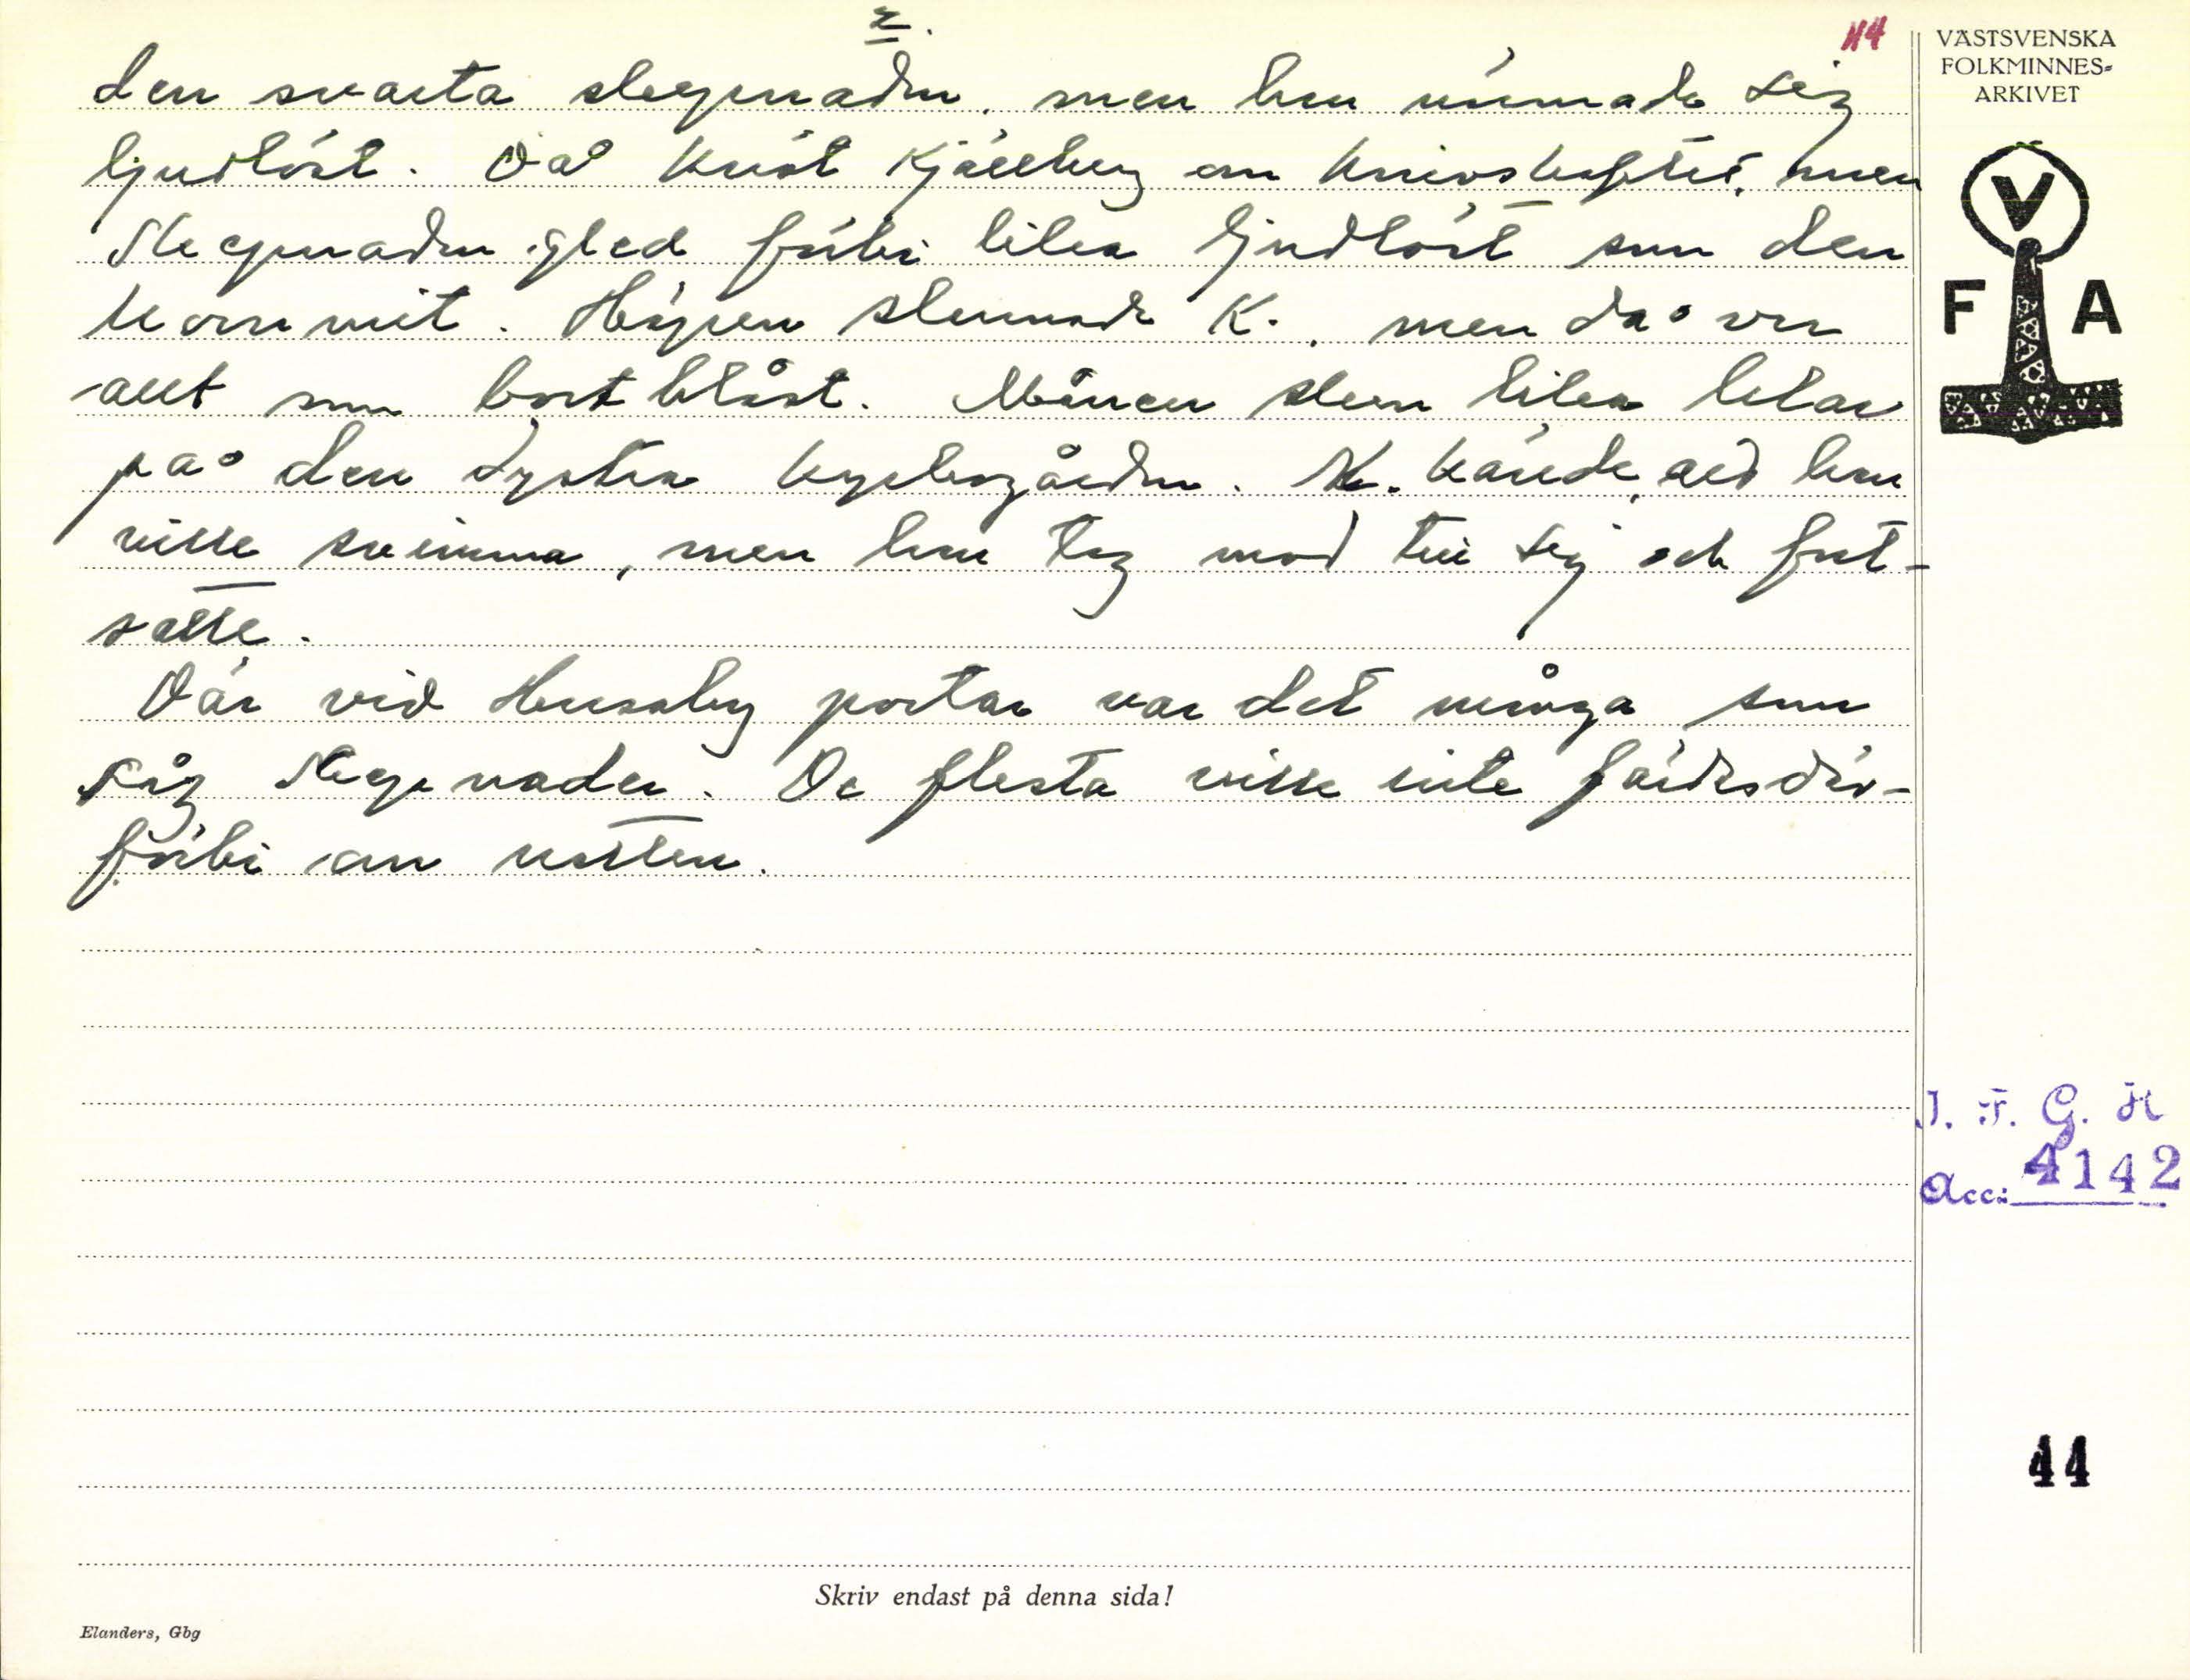 2.
44
den svarta slepnaden, men hon närmade sig
ljudlöst. Då knöt Kjällberg om knivskaftet, men
Slepnaden gled förbi lika ljudlöst som den
kommit. Häpen stannade K., men då var
allt som bortblåst. Månen sken lika klar
på den dystra kyrkogården. K. kände, att han
ville svimma, men han tog mod till sig och fort-
satte.
Där vid Husaby portar var det många som
såg Slepnaden. De flesta ville inte färdas där-
förbi om natten.
VÄSTSVENSKA
FOLKMINNES-
ARKIVET
V
F A
I. F. G. H
Acc: 4142
44
Skriv endast på denna sida!
Elanders, Gbg